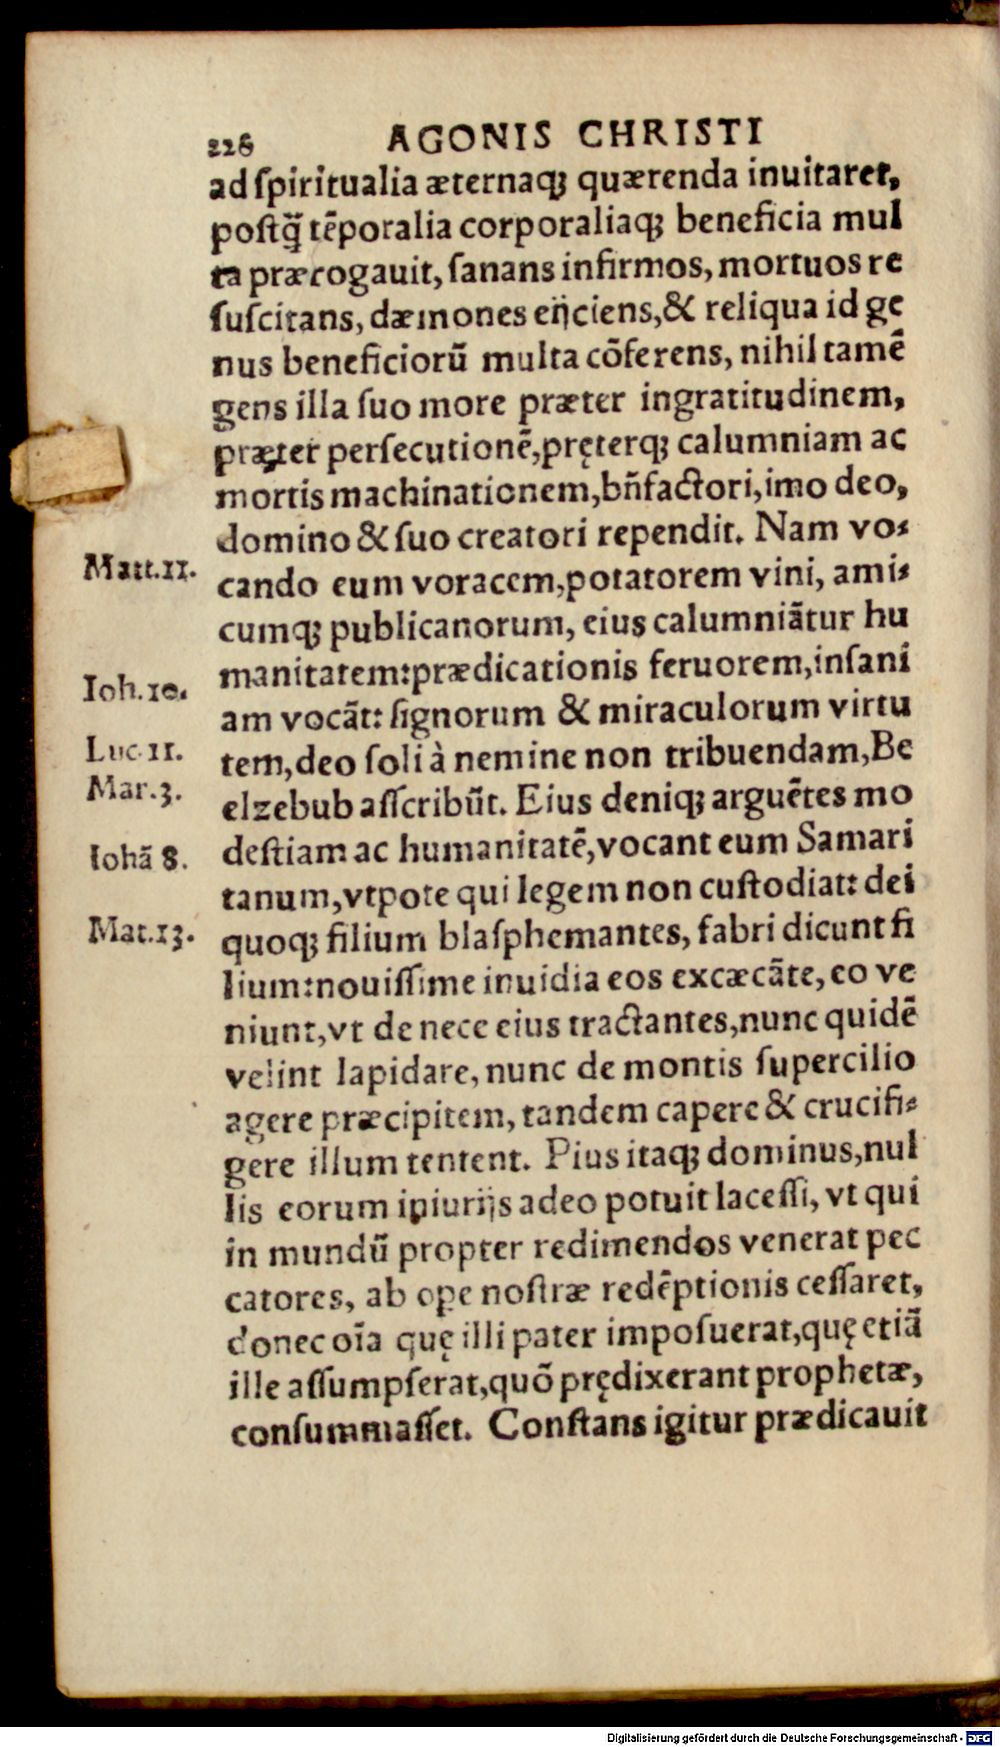 226 AGONIS CHRISTI
ad ſpiritualia æternaq; quærenda inuitaret,
poſtq̃ tẽporalia corporaliaq; beneficia mul
ta prærogauit, ſanans infirmos, mortuos re
ſuſcitans, dæmones eijciens, & reliqua id ge
nus beneficiorũ multa cõferens, nihil tamẽ
gens illa ſuo more præter ingratitudinem,
præter perſecutionẽ, pręterq; calumniam ac
mortis machinationem, bñfactori, imo deo,
domino & ſuo creatori rependit. Nam vo⸗
Matt.11. cando eum voracem, potatorem vini, ami⸗
cumq; publicanorum, eius calumniãtur hu
manitatem: prædicationis feruorem, inſani
Ioh.10. am vocãt: ſignorum & miraculorum virtu
Luc.11. tem, deo ſoli à nemine non tribuendam, Be
Mar.3. elzebub aſſcribũt. Eius deniq; arguẽtes mo
Iohã 8. deſtiam ac humanitatẽ, vocant eum Samari
tanum, vtpote qui legem non cuſtodiat: dei
Mat.13. quoq; filium blaſphemantes, fabri dicunt fi
lium: nouiſſime inuidia eos excæcãte, eo ve
niunt, vt de nece eius tractantes, nunc quidẽ
velint lapidare, nunc de montis ſupercilio
agere præcipitem, tandem capere & crucifi⸗
gere illum tentent. Pius itaq; dominus, nul
lis eorum iniurijs adeo potuit laceſſi, vt qui
in mundũ propter redimendos venerat pec
catores, ab ope noſtræ redẽptionis ceſſaret,
donec oĩa quę illi pater impoſuerat, quę etiã
ille aſſumpſerat, quõ prędixerant prophetæ,
conſummaſſet. Conſtans igitur prædicauit
Digitalisierung gefördert durch die Deutsche Forschungsgemeinschaft - DFG